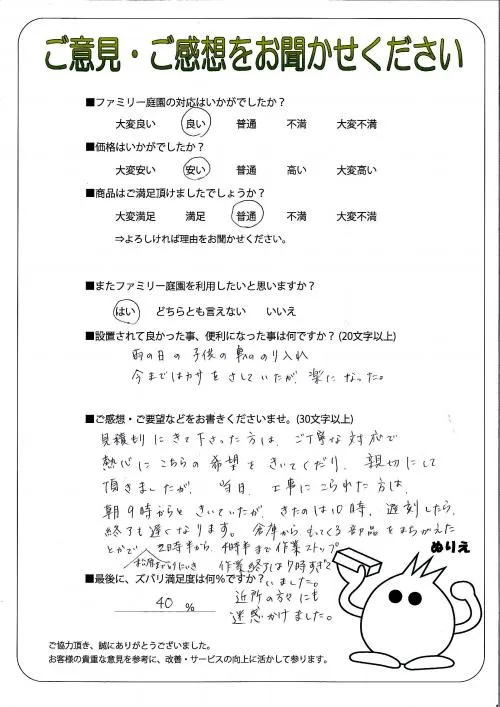 ご意見・ご感想をお聞かせください
■ファミリー庭園の対応はいかがでしたか？
大変良い 良い 普通 不満 大変不満
■価格はいかがでしたか？
大変安い 安い 普通 高い 大変高い
■商品はご満足頂けましたでしょうか？
大変満足 満足 普通 不満 大変不満
⇒よろしければ理由をお聞かせください。
■またファミリー庭園を利用したいと思いますか？
はい どちらとも言えない いいえ
■設置されて良かった事、便利になった事は何ですか？(20文字以上)
雨の日の子供の車ののり入れ
今まではカサをさしていたが、楽になった。
■ご感想・ご要望などをお書きくださいませ。(30文字以上)
見積りにきて下さった方は、ご丁寧な対応で
熱心にこちらの希望をきいてくだり、親切にして
頂きましたが、当日、工事にこられた方は、
朝9時からときいていたが、きたのは10時、遅刻したら、
終了も遅くなります。倉庫からもってくる部品をまちがえた
とかで、2時半から、4時半まで作業ストップ
作業終了は7時すぎて
いました。
近所の方々にも
迷惑かけました。
ぬりえ
■最後に、ズバリ満足度は何%ですか？
40 %
ご協力頂き、誠にありがとうございました。
お客様の貴重な意見を参考に、改善・サービスの向上に活かして参ります。